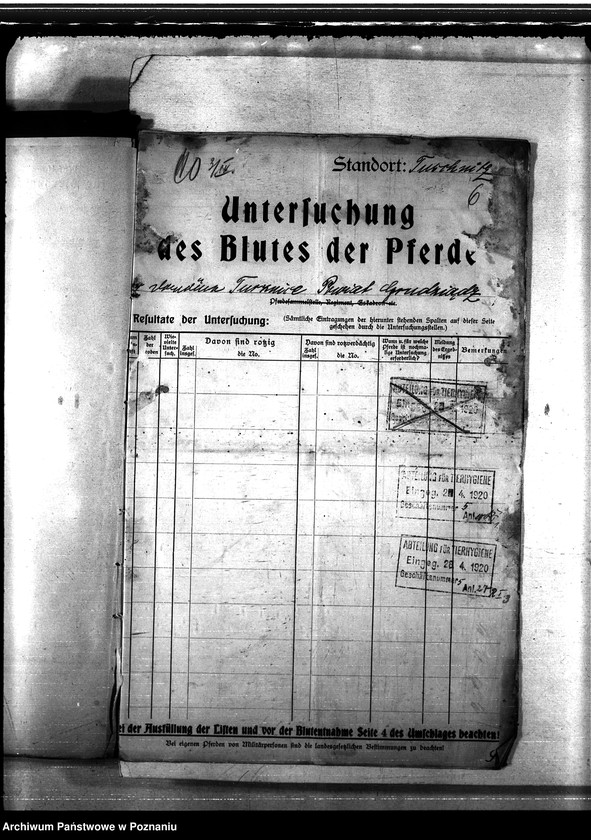 Standort: Turschnitz
6
Untersuchung
des Blutes der Pferde
Turznice Powiat Grudziadz
Pferdesammelstelle, Regiment, Eskadron etc.
Resultate der Untersuchung:
(Sämtliche Eintragungen der hierunter stehenden Spalten auf dieser Seite
geschehen durch die Untersuchungsstellen.)
Zahl
der
Wie-
vielte
Unter-
such.
Zahl
insgef.
Davon sind rotzig
die No.
Davon sind rotzverdächtig
Zahl
insgef.
die No.
Wann u. für welche
Pferde ist nochma-
lige Untersuchung
erforderlich?
Meldung
des Ergeb-
nisses
Bemerkungen
ABTEILUNG FÜR TIERHYGIENE
1920
ABTEILUNG FÜR TIERHYGIENE
Eingeg. 4. 1920
Geschäftsnummer 5
Anl.
ABTEILUNG FÜR TIERHYGIENE
Eingeg. 28 4. 1920
Geschäftsnummer 5
Anl.
der Ausfüllung der Listen und vor der Blutentnahme Seite 4 des Umschlages beachten!
Bei eigenen Pferden von Militärpersonen sind die landesgesetzlichen Bestimmungen zu beachten!
Archiwum Państwowe w Poznaniu